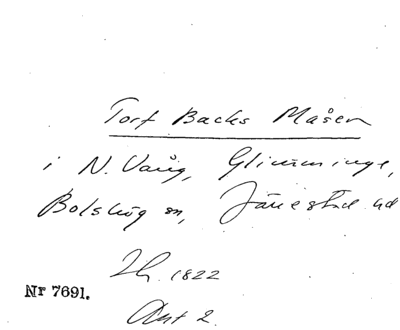 Torf Backs Måsen
i N. Vång, Glimminge,
Bolshög sn, Järrestad hd
1822
Nr 7691.
Akt 2.